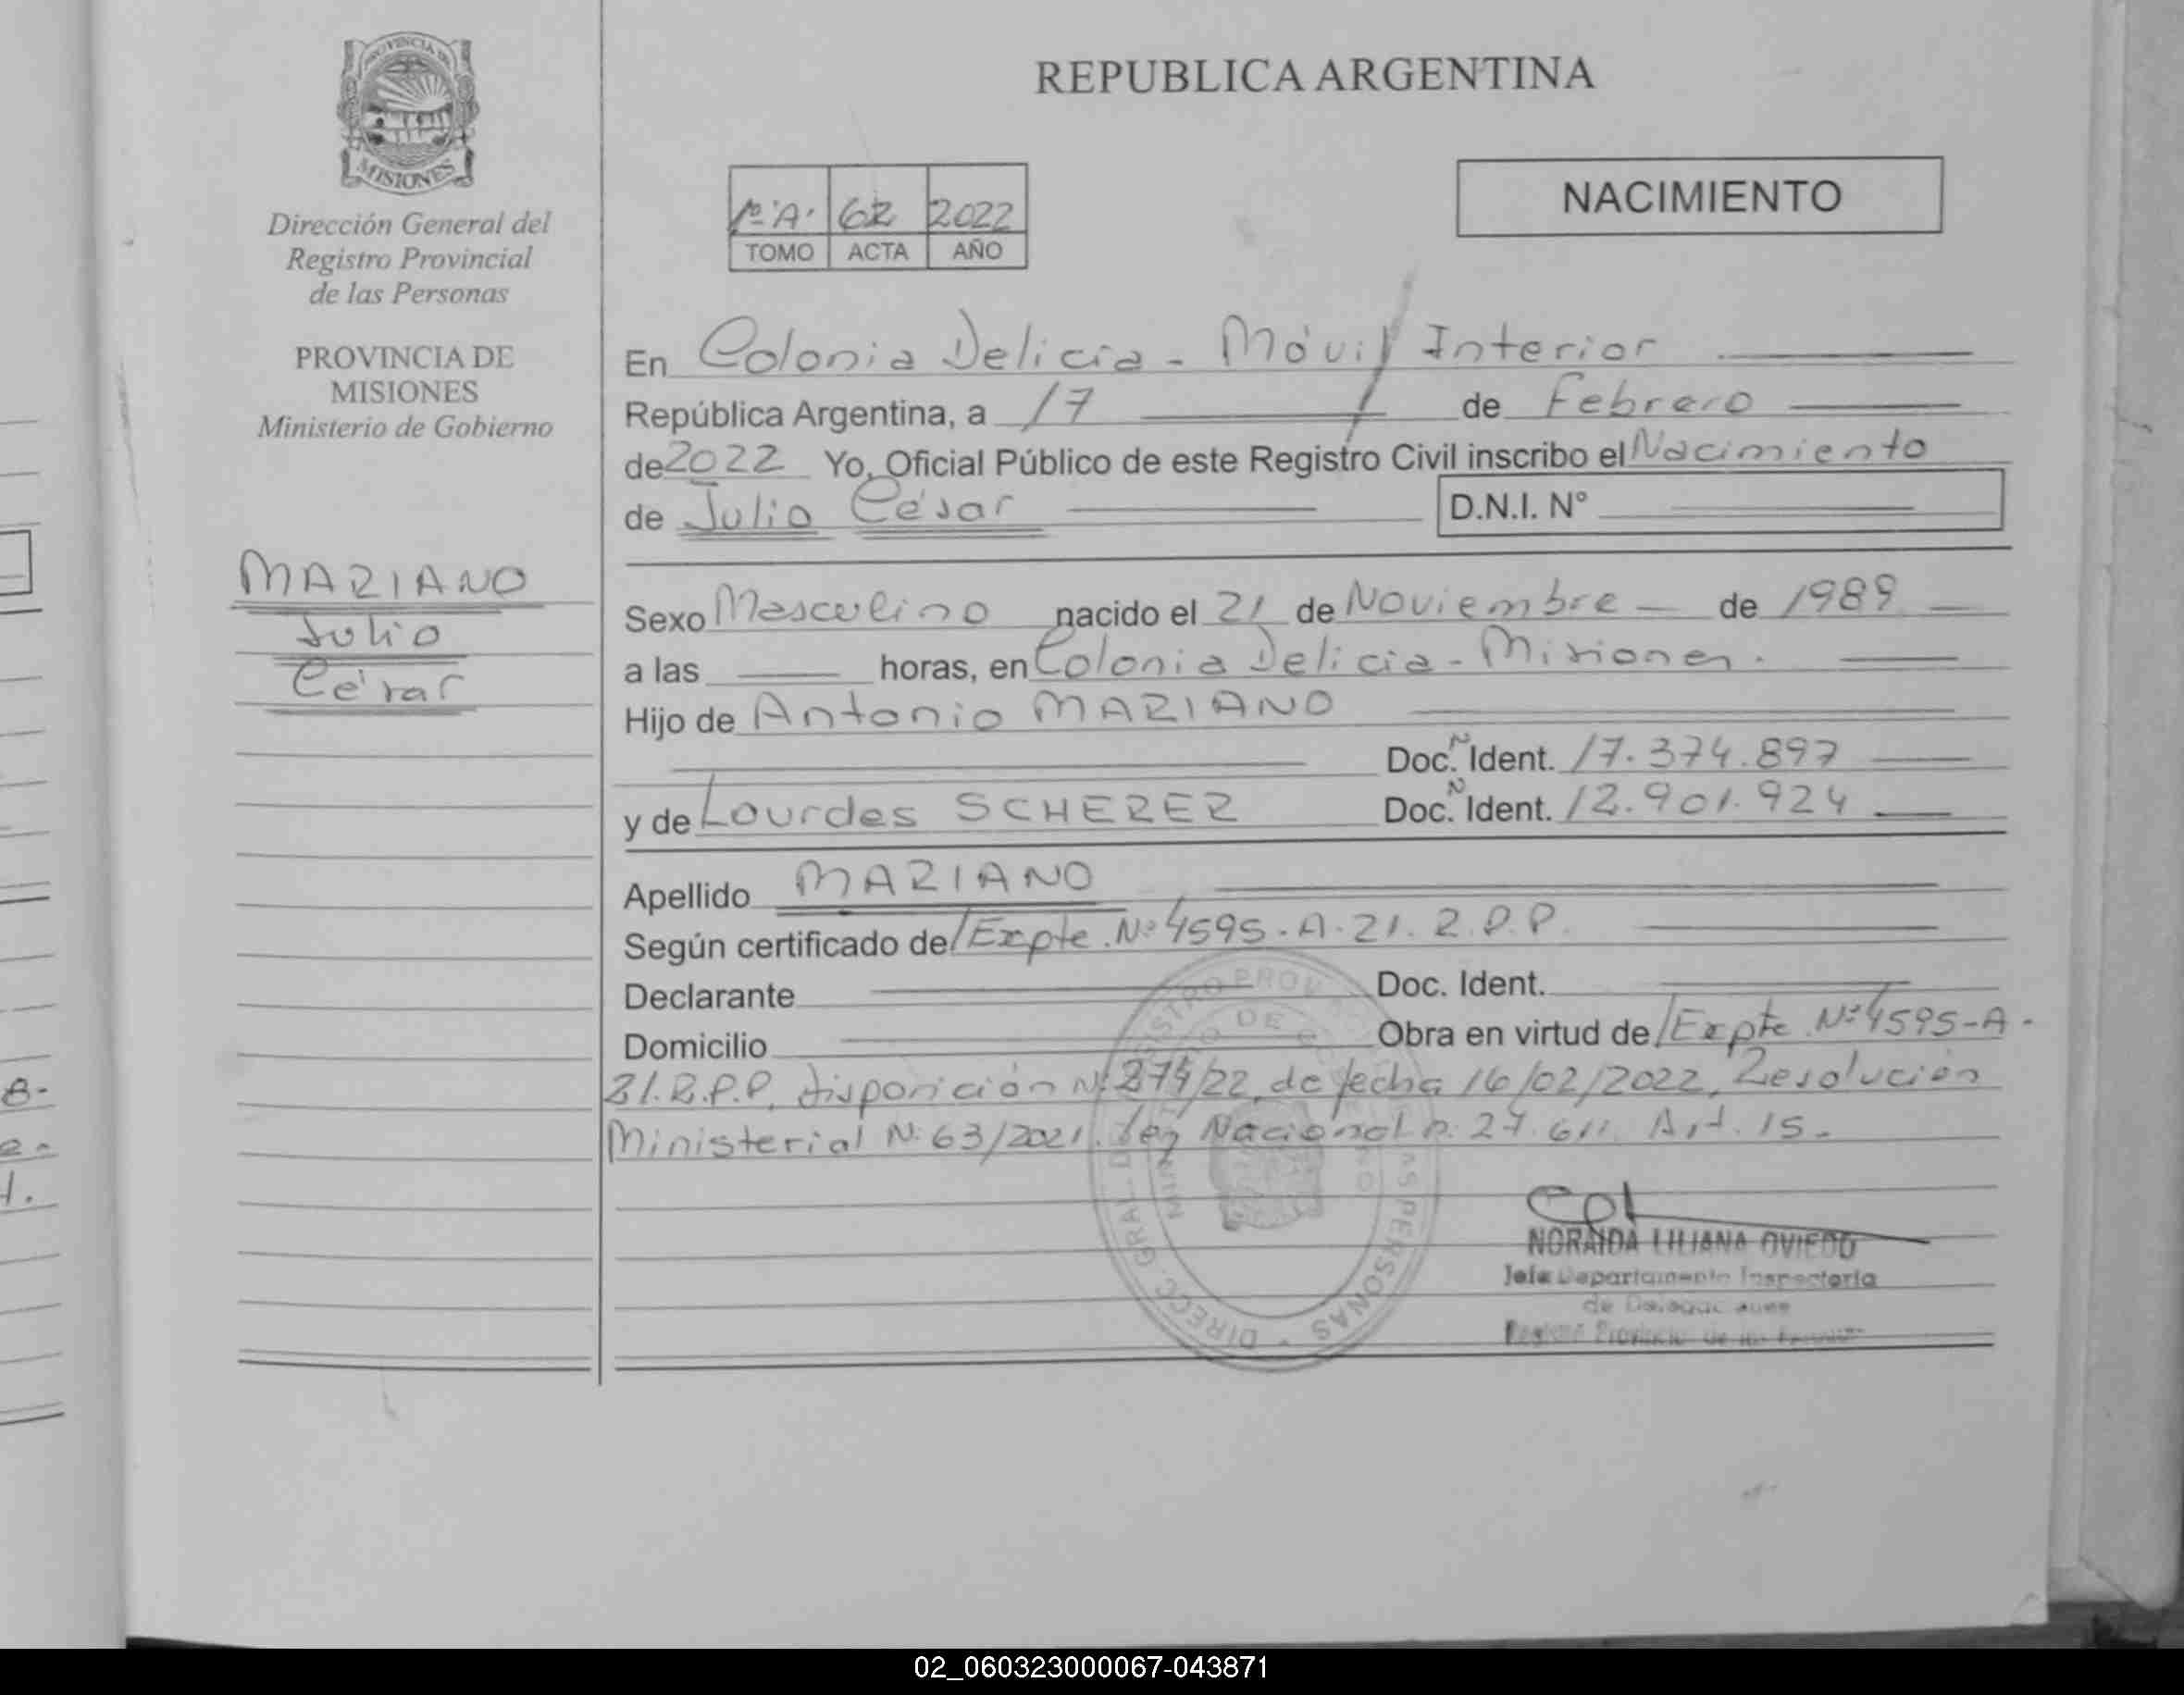 PROVINCIA DE
MISIONES
Dirección General del
Registro Provincial
de las Personas
PROVINCIA DE
MISIONES
Ministerio de Gobierno
MARIANO
Julio
César
REPUBLICA ARGENTINA
1º "A" 62 2022
TOMO ACTA AÑO
NACIMIENTO
En Colonia Delicia - Móvil Interior
República Argentina, a 17 de Febrero
de 2022 Yo, Oficial Público de este Registro Civil inscribo el Nacimiento
de Julio César D.N.I. N°
Sexo Masculino nacido el 21 de Noviembre de 1989
a las horas, en Colonia Delicia - Misiones.
Hijo de Antonio MARIANO
Doc. N Ident. 17.374.897
y de Lourdes SCHERER Doc. N Ident. 12.901.924
Apellido MARIANO
Según certificado de Expte. Nº 4595-A-21. R.P.P.
Declarante Doc. Ident.
Domicilio Obra en virtud de Expte Nº 4595-A-
21.R.P.P, disposición Nº /22, de fecha 16/02/2022, Resolución
Ministerial Nº 63/2021. Ley Nacional n. 27.611 Art. 15.
NORAIDA LILIANA OVIEDO
Jefe Departamento Inspectoria
de Delegaciones
Registro Provincial de las Personas
DIRECC. GRAL. DEL REGISTRO PROV. DE LAS PERSONAS
MINISTERIO DE GOBIERNO
8-
02_060323000067-043871